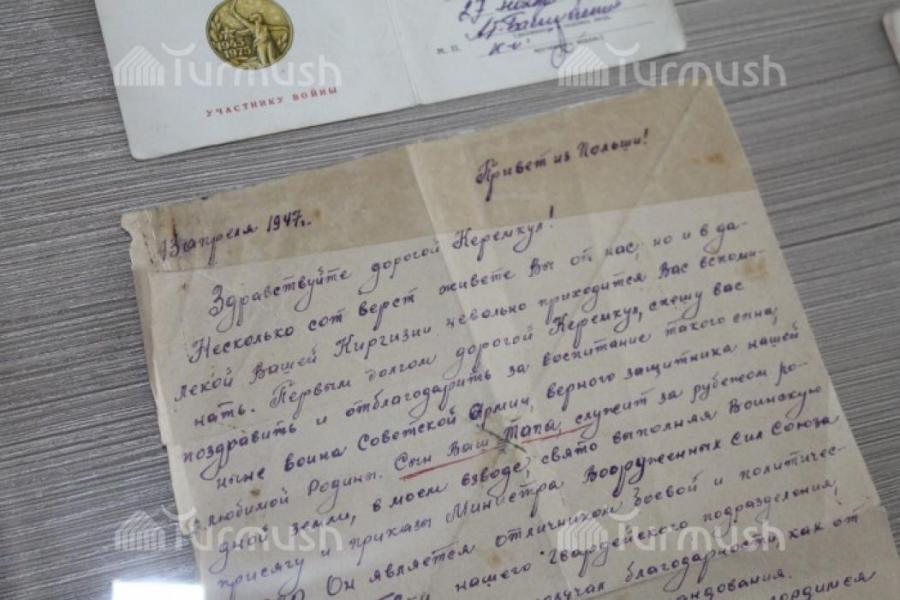 1945
1975
УЧАСТНИКУ ВОЙНЫ
27
М. П.
Turmush
Turmush
Привет из Польши!
13 апреля 1947г.
Здравствуйте дорогой Керемкул!
Несколько сот верст живете Вы от нас, но и в да-
лекой Вашей Киргизии невольно приходится Вас вспоми-
нать. Первым долгом дорогой Керемкул, спешу вас
поздравить и отблагодарить за воспитание такого сына,
ныне воина Советской Армии, верного защитника нашей
любимой Родины. Сын Ваш Тапа, служит за рубежом ро-
дной земли, в моем взводе, свято выполняя Воинскую
присягу и приказы Министра Вооруженных Сил Союза
Он является отличником боевой и политичес-
нашего Гвардейского подразделения,
получал благодарности как от
командования.
гордимся
Turmush
Turmush